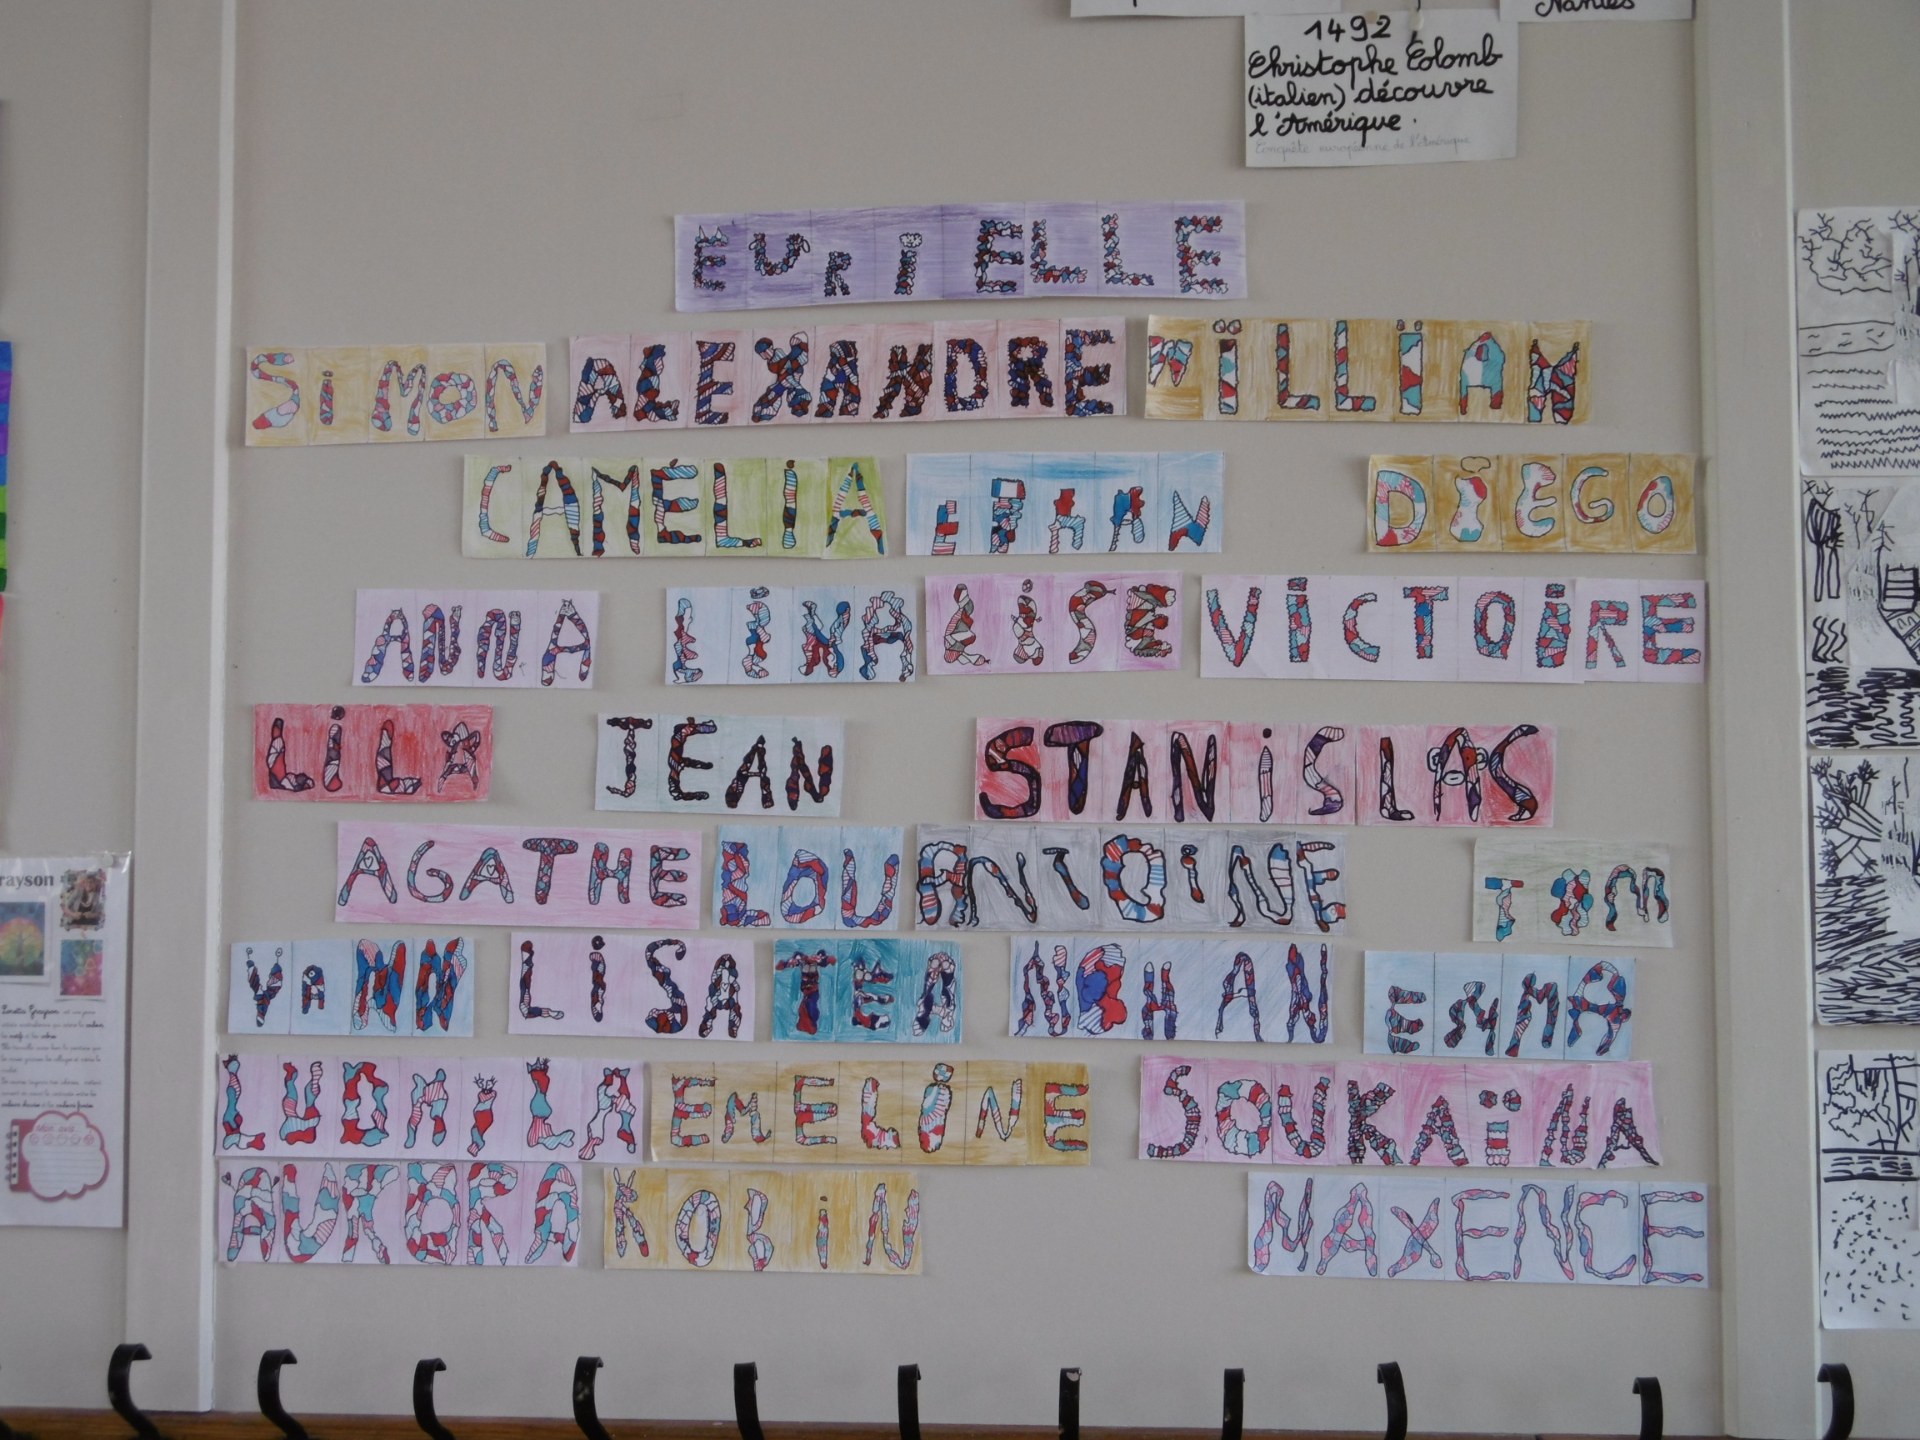 Nantes
1492
Christophe Colomb
(italien) découvre
l'Amérique.
Conquête européenne de l'Amérique
EURIELLE
SIMON ALEXANDRE WÏLLÏAM
CAMÉLIA EPHAN DIEGO
ANNA LINA LISE VICTOIRE
LILA JEAN STANISLAS
AGATHE LOU ANTOINE TOM
YANN LISA TEA NOHAN EMMA
LUDMILA EMELINE SOUKAÏNA
AURORA ROBIN MAXENCE
rayson